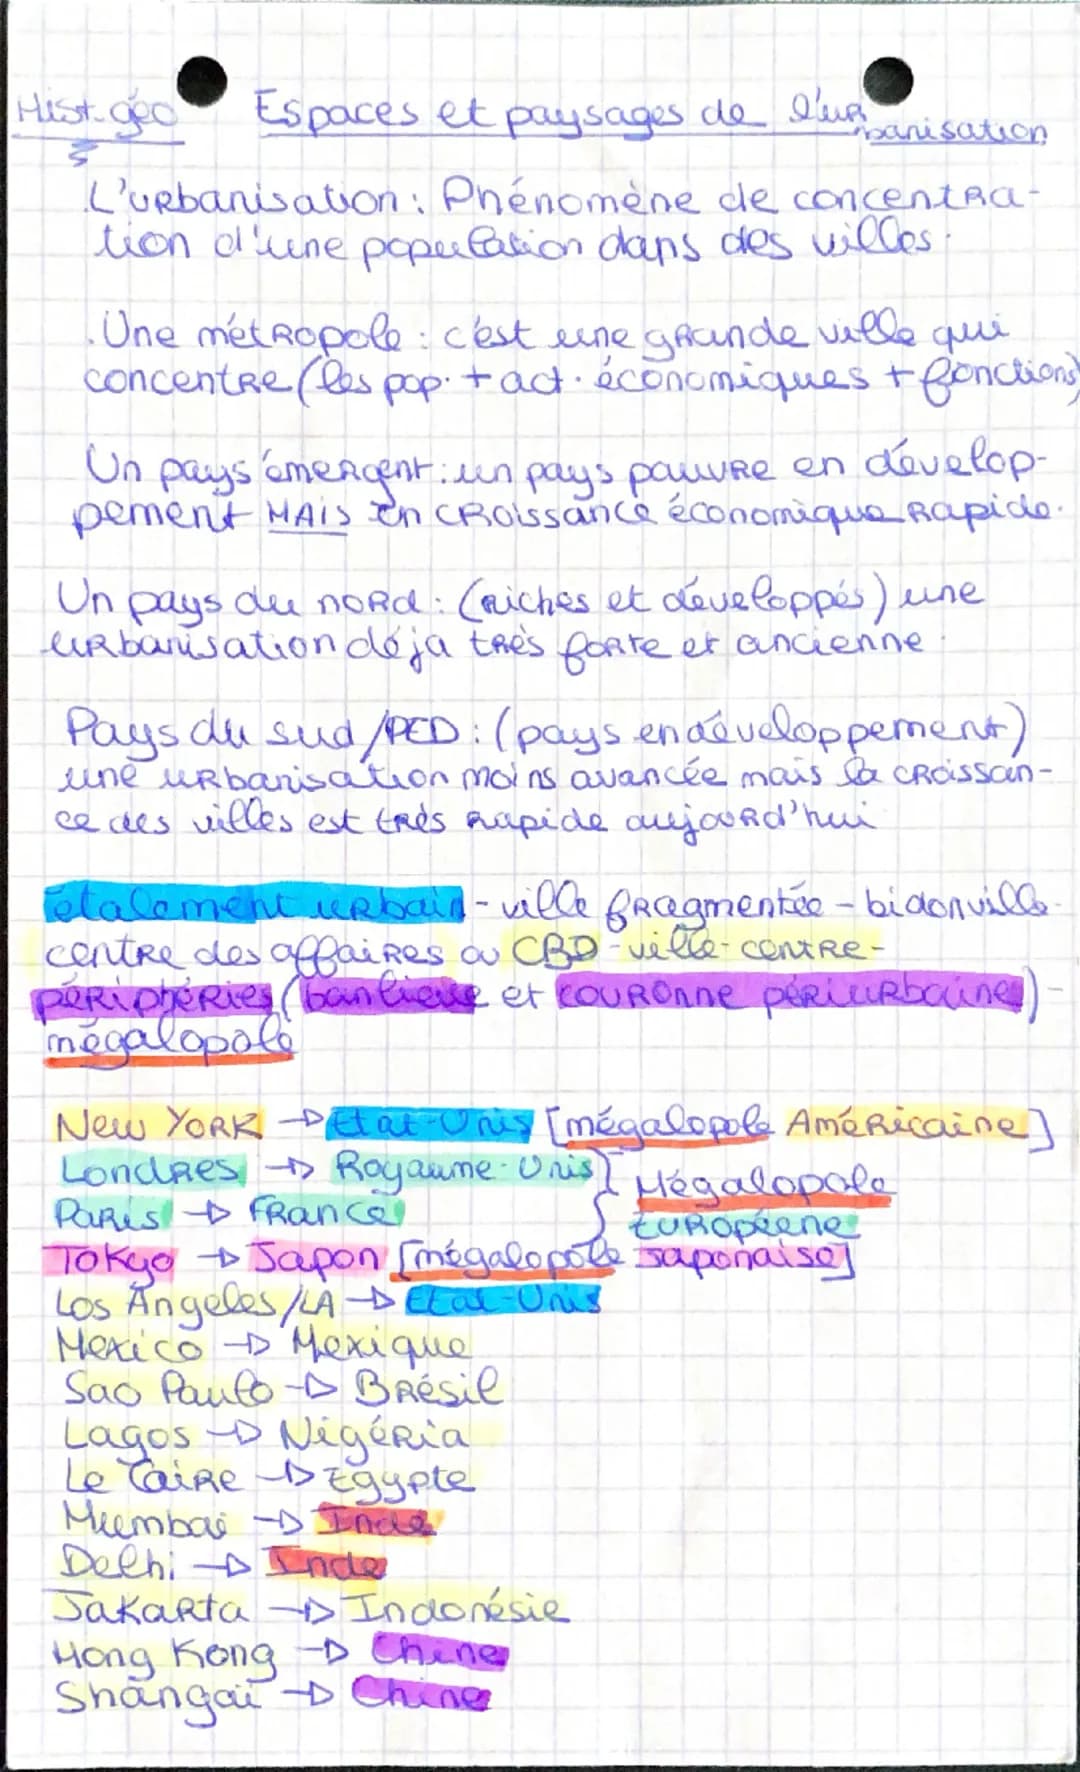 Hist-géo Espaces et paysages de l'urbanisation
L'urbanisation : Phénomène de concentra-
tion d'une population dans des villes.
.Une métropole : c'est une grande ville qui
concentre (les pop. + act. économiques + fonctions)
Un pays émergent : un pays pauvre en dévelop-
pement MAIS En croissance économique rapide.
Un pays du nord : (riches et développés) une
urbanisation déja très forte et ancienne.
Pays du sud/PED : (pays en développement)
une urbanisation moins avancée mais la croissan-
ce des villes est très rapide aujourd'hui
étalement urbain - ville fragmentée - bidonville-
centre des affaires ou CBD - ville-centre -
périphéries (banlieue et couronne périurbaine) -
mégalopole
New York → Etat-Unis [mégalopole Américaine]
Londres → Royaume-Unis } Mégalopole
Paris → France } Européene
Tokyo → Japon [mégalopole japonaise]
Los Angeles/LA → Etat-Unis
Mexico → Mexique
Sao Paulo → Brésil
Lagos → Nigéria
Le Caire → Egypte
Mumbai → Inde
Delhi → Inde
Jakarta → Indonésie
Hong Kong → Chine
Shangaï → Chine